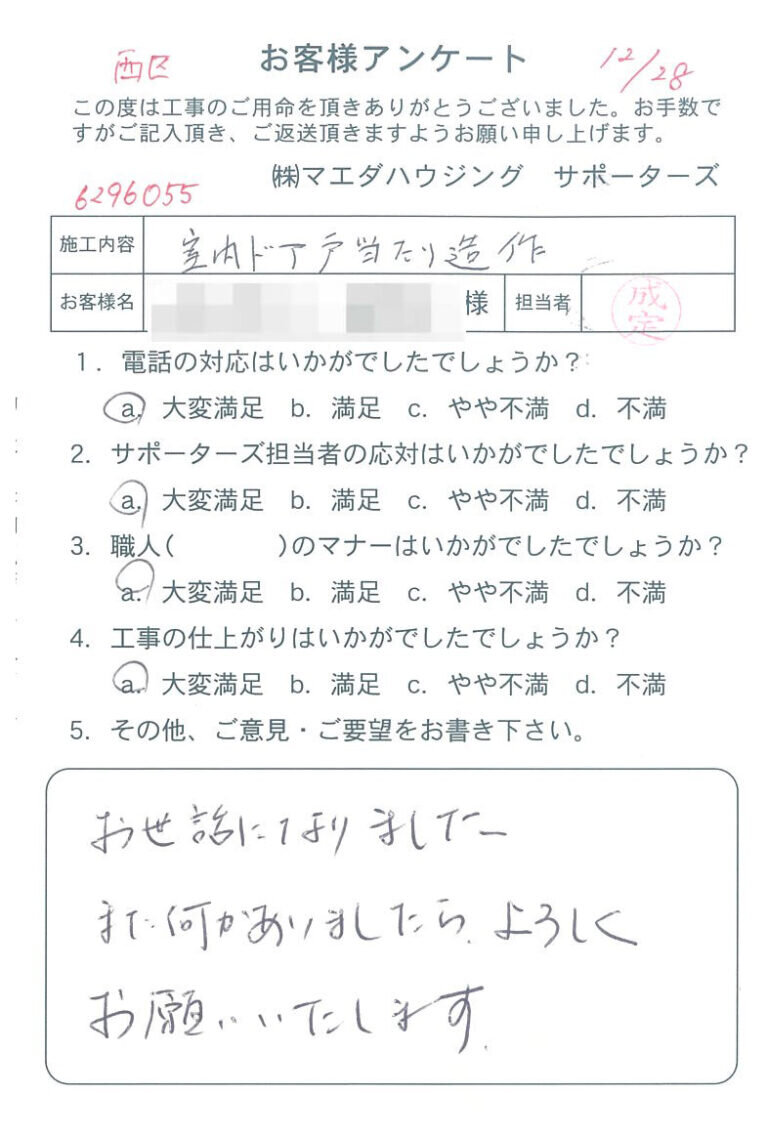 西区 お客様アンケート 12/28
この度は工事のご用命を頂きありがとうございました。お手数で
すがご記入頂き、ご返送頂きますようお願い申し上げます。
㈱マエダハウジング サポーターズ
6296055
施工内容 室内ドア戸当たり造作
お客様名 様 担当者 成定
1. 電話の対応はいかがでしたでしょうか?
a. 大変満足 b. 満足 c. やや不満 d. 不満
2. サポーターズ担当者の応対はいかがでしたでしょうか?
a. 大変満足 b. 満足 c. やや不満 d. 不満
3. 職人( )のマナーはいかがでしたでしょうか?
a. 大変満足 b. 満足 c. やや不満 d. 不満
4. 工事の仕上がりはいかがでしたでしょうか?
a. 大変満足 b. 満足 c. やや不満 d. 不満
5. その他、ご意見・ご要望をお書き下さい。
お世話になりました
また何かありましたら、よろしく
お願いいたします。